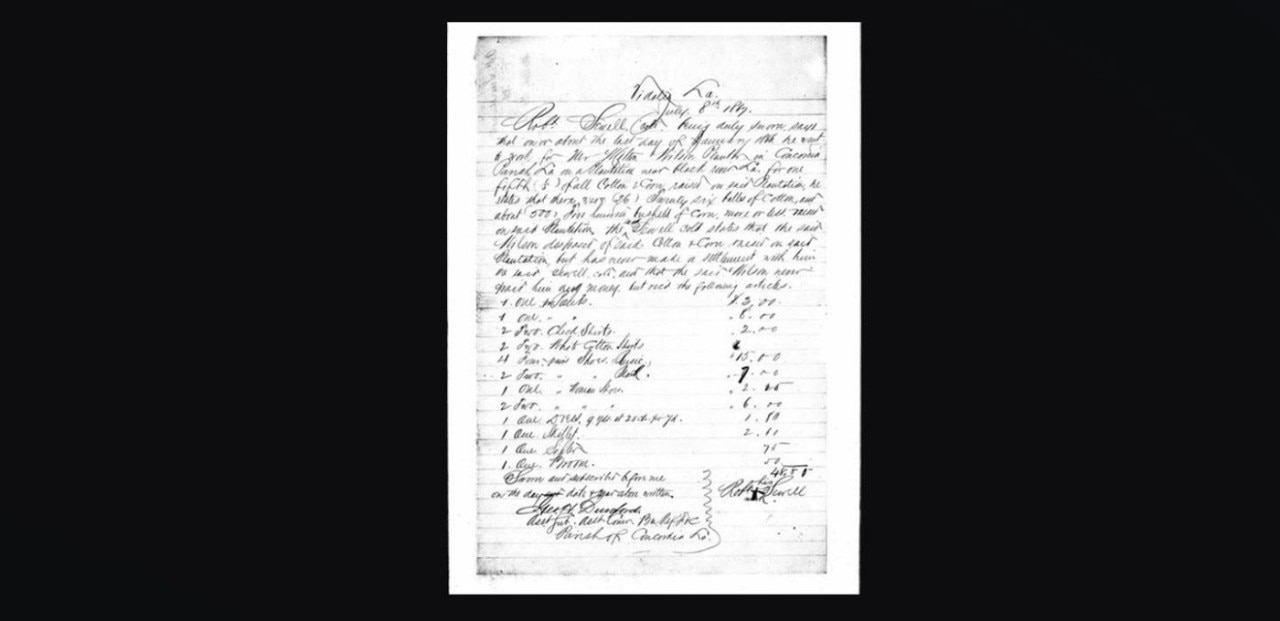 Vidalia La.
July 8th 1867.
Robt. Sewell, cold. being duly sworn, says
that on or about the last day of January 1866 he went
to work for Mr Wilson Planter in Concordia
Parish La on a Plantation near black river La. for one
fifth (5) of all Cotton & Corn, raised on said Plantation, he
states that there were (26) Twenty six bales of Cotton, and
about 500, five hundred bushels of Corn, more or less raised
on said Plantation, the said Sewell cold states that the said
Wilson disposed of said Cotton & Corn raised on said
Plantation, but has never made a settlement with him
the said Sewell. cold. and that the said Wilson never
paid him any money, but recd the following articles.
1 One $2.00
1 One " " " 8.00
2 Two. Check Shirts. " 2.00
2 Two. Cotton Shirts
4 Four pair Shoes " 15.00
2 Two. " " " 7.00
1 One " Woman Shoes. " 2.
2 Two. " " " " 6.00
1 One Dress, 9 yds at 20cts pr yd. 1.80
1 One 2.
1 One 75
1. One Broom. 50
Sworn and subscribed before me
on the day and date & year above written.
his
Robt X Sewell
Asst Sub. Asst Comr. Bu Ref F &C
Parish of Concordia La.